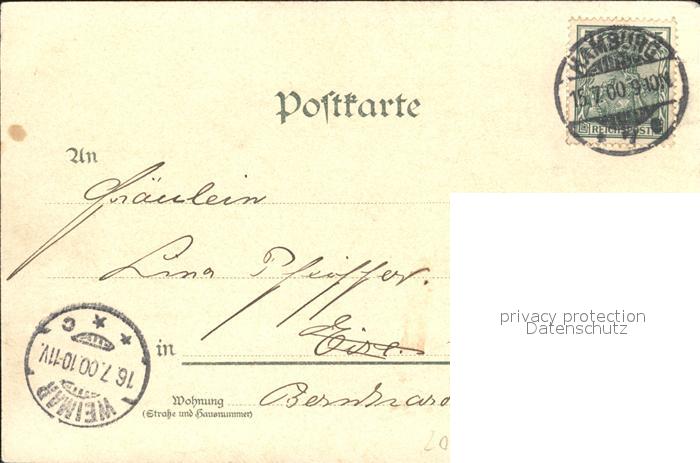 HAMBURG
15.7.00.9-10N
REICHSPOST
Postkarte
An
Fräulein
Lina Pfeiffer.
privacy protection
Datenschutz
in
WEIMAR
16.7.00.10-11V.
C
Wohnung
(Straße und Hausnummer)
Bernhard
20